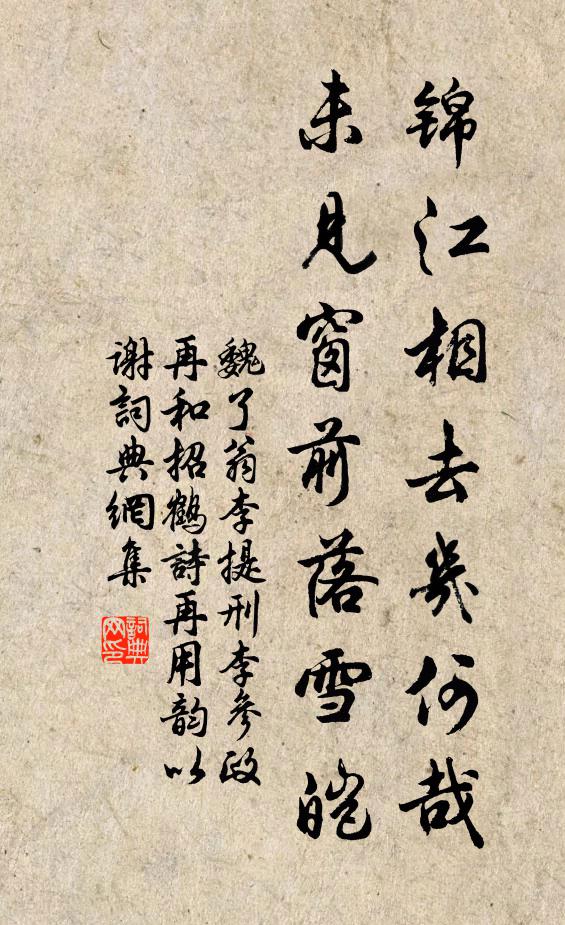 锦江相去幾何哉
未見窗前落雪皑
魏了翁李提刑李參政
再和招鶴詩再用韵以
謝詞典網集
詞典
网印